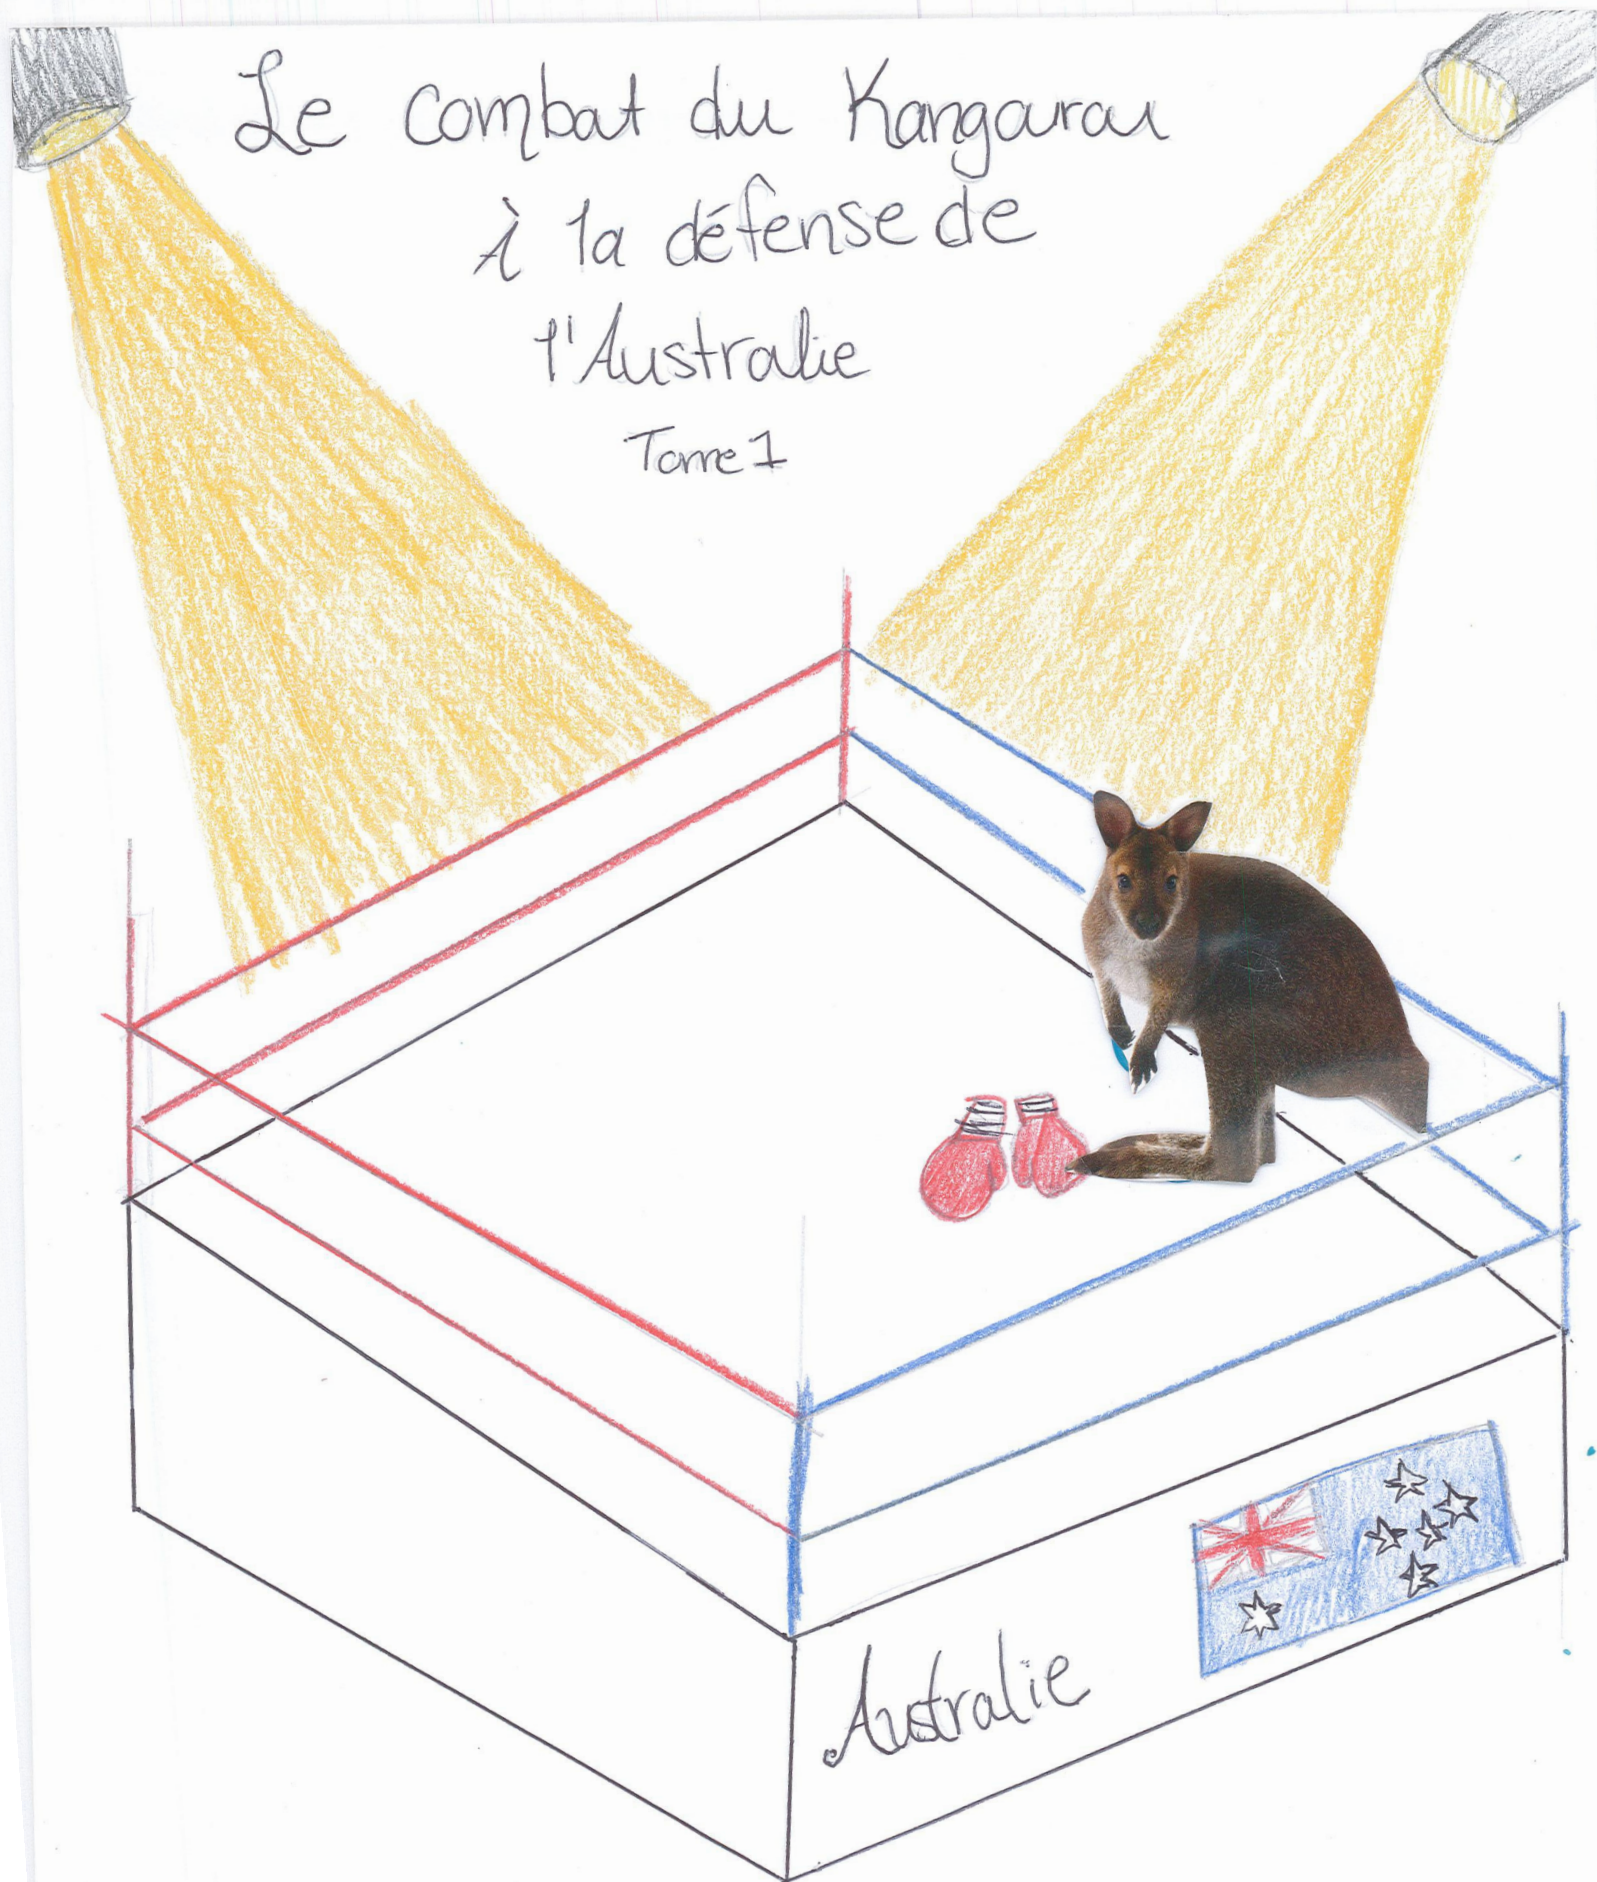 Le combat du Kangourou
À la défense de
l'Australie
Tome 1
Australie